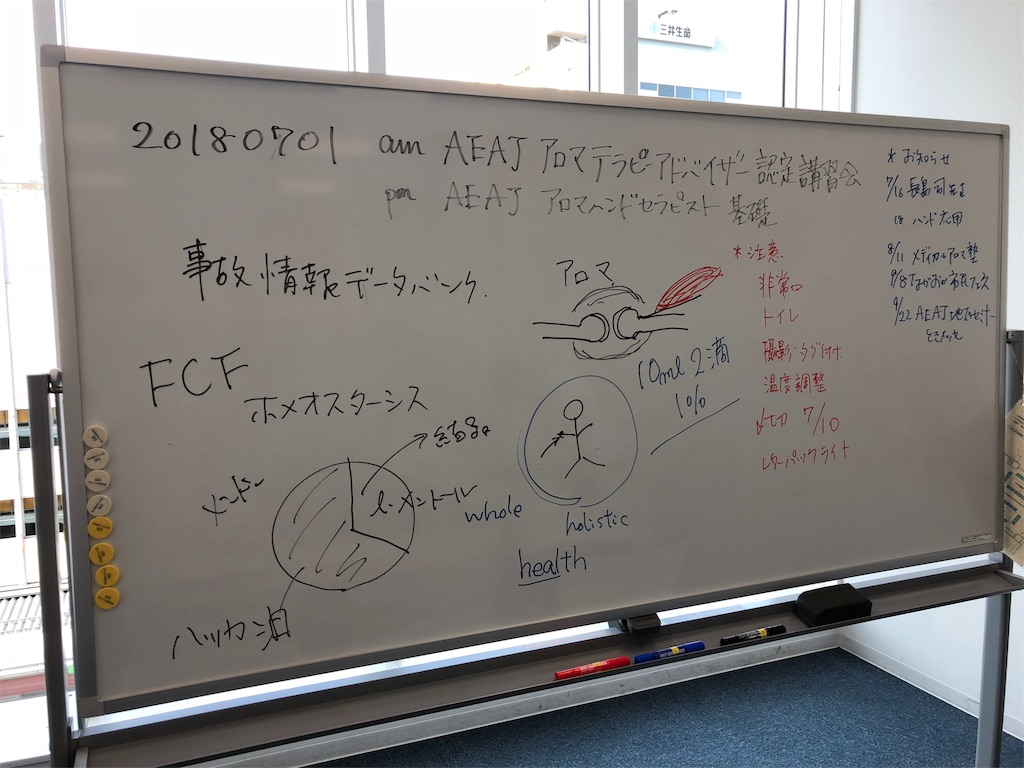 三井生命
20180701 am AEAJ アロマテラピーアドバイザー 認定講習会
pm AEAJ アロマハンドセラピスト 基礎
事故情報データバンク
FCF
ホメオスターシス
結晶
l-メントール
ハッカ油
アロマ
10ml 2滴
1%
whole
holistic
health
* 注意
非常口
トイレ
撮影・タグ付け
温度調整
〆切 7/10
レターパックライト
* お知らせ
7/16 長島司先生
18 ハンド応用
8/11 メディカルアロマ塾
9/8 ながおか市民フェス
9/22 AEAJ 地区セミナー
ときメッセ